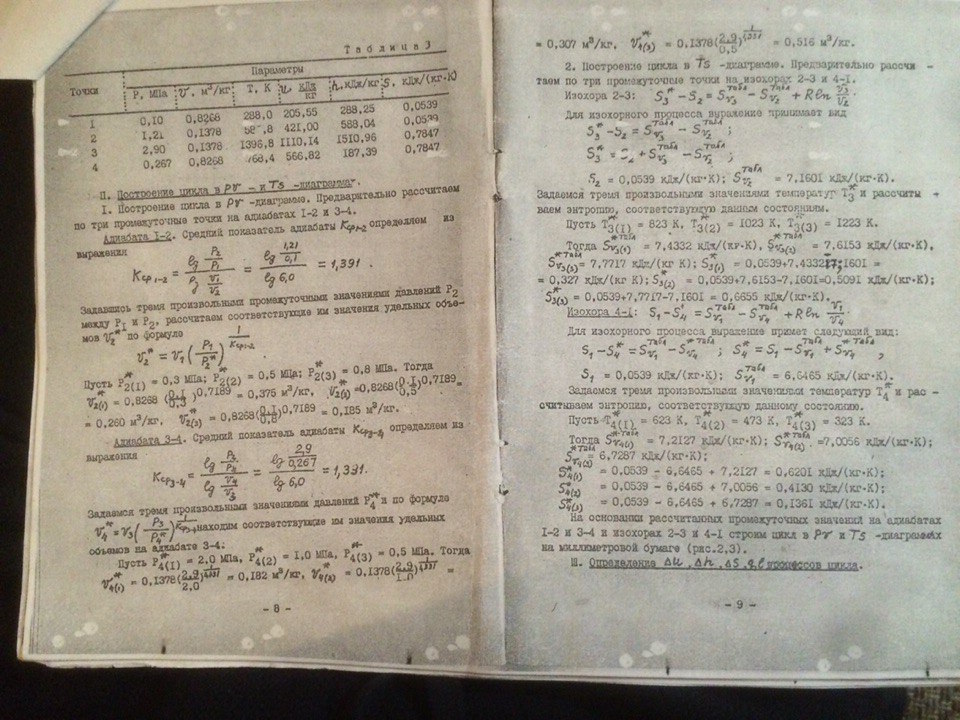 Таблица 3
Точки | Параметры
P, МПа | v, м³/кг | T, К | u, кДж/кг | h, кДж/кг | S, кДж/(кг·К)
1 0,10 0,8268 288,0 205,55 288,25 0,0539
2 1,21 0,1378 421,00 589,04 0,0539
3 2,90 0,1378 1396,8 1110,14 1510,96 0,7847
4 0,267 0,8268 768,4 566,82 187,39 0,7847
II. Построение цикла в pv – и Ts -диаграммах.
I. Построение цикла в pv -диаграмме. Предварительно рассчитаем
по три промежуточные точки на адиабатах I-2 и 3-4.
Адиабата I-2. Средний показатель адиабаты Kср1-2 определяем из
выражения
Kср1-2 = lg(P₂/P₁) / lg(v₁/v₂) = lg(1,21/0,1) / lg 6,0 = 1,391.
Задавшись тремя произвольными промежуточными значениями давлений P₂*
между P₁ и P₂, рассчитаем соответствующие им значения удельных объе-
мов v₂* по формуле
v₂* = v₁(P₁/P₂*)^(1/Kср1-2)
Пусть P₂*(1) = 0,3 МПа; P₂*(2) = 0,5 МПа; P₂*(3) = 0,8 МПа. Тогда
v₂*(1) = 0,8268 (0,1/0,3)^0,7189 = 0,375 м³/кг, v₂*(2) = 0,8268(0,1/0,5)^0,7189 =
= 0,260 м³/кг, v₂*(3) = 0,8268(0,1/0,8)^0,7189 = 0,185 м³/кг.
Адиабата 3-4. Средний показатель адиабаты Kср3-4 определяем из
выражения
Kср3-4 = lg(P₃/P₄) / lg(v₄/v₃) = lg(2,9/0,267) / lg 6,0 = 1,331.
Задаемся тремя произвольными значениями давлений P₄* и по формуле
v₄* = v₃(P₃/P₄*)^(1/Kср3-4) находим соответствующие им значения удельных
объемов на адиабате 3-4:
Пусть P₄*(1) = 2,0 МПа, P₄*(2) = 1,0 МПа, P₄*(3) = 0,5 МПа. Тогда
v₄*(1) = 0,1378(2,9/2,0)^(1/1,331) = 0,182 м³/кг, v₄*(2) = 0,1378(2,9/1,0)^(1/1,331) =
– 8 –
= 0,307 м³/кг, v₄*(3) = 0,1378(2,9/0,5)^(1/1,331) = 0,516 м³/кг.
2. Построение цикла в Ts -диаграмме. Предварительно рассчи -
таем по три промежуточные точки на изохорах 2-3 и 4-I.
Изохора 2-3: S₃* – S₂ = Sv₃*табл – Sv₂табл + R ln v₃/v₂.
Для изохорного процесса выражение принимает вид
S₃* – S₂ = Sv₃*табл – Sv₂табл ;
S₃* = S₂ + Sv₃*табл – Sv₂табл ;
S₂ = 0,0539 кДж/(кг·К); Sv₂табл = 7,1601 кДж/(кг·К).
Задаемся тремя произвольными значениями температур T₃* и рассчиты -
ваем энтропию, соответствующую данным состояниям.
Пусть T₃*(1) = 823 К, T₃*(2) = 1023 К, T₃*(3) = 1223 К.
Тогда Sv₃(1)*табл = 7,4332 кДж/(кг·К), Sv₃(2)*табл = 7,6153 кДж/(кг·К),
Sv₃(3)*табл = 7,7717 кДж/(кг К); S₃*(1) = 0,0539+7,4332-7,1601 =
= 0,327 кДж/(кг К); S₃*(2) = 0,0539+7,6153-7,1601=0,5091 кДж/(кг К);
S₃*(3) = 0,0539+7,7717-7,1601 = 0,6655 кДж/(кг·К).
Изохора 4-I: S₁ – S₄* = Sv₁табл – Sv₄*табл + R ln v₁/v₄.
Для изохорного процесса выражение примет следующий вид:
S₁ – S₄* = Sv₁табл – Sv₄*табл ; S₄* = S₁ – Sv₁табл + Sv₄*табл ,
S₁ = 0,0539 кДж/(кг·К); Sv₁табл = 6,6465 кДж/(кг·К).
Задаемся тремя произвольными значениями температур T₄* и рас -
считываем энтропию, соответствующую данному состоянию.
Пусть T₄*(1) = 623 К, T₄*(2) = 473 К, T₄*(3) = 323 К.
Тогда Sv₄(1)*табл = 7,2127 кДж/(кг·К); Sv₄(2)*табл = 7,0056 кДж/(кг·К);
Sv₄(2)*табл = 6,7287 кДж/(кг·К);
S₄*(1) = 0,0539 – 6,6465 + 7,2127 = 0,6201 кДж/(кг·К);
S₄*(2) = 0,0539 – 6,6465 + 7,0056 = 0,4130 кДж/(кг·К);
S₄*(3) = 0,0539 – 6,6465 + 6,7287 = 0,1361 кДж/(кг·К).
На основании рассчитанных промежуточных значений на адиабатах
I-2 и 3-4 и изохорах 2-3 и 4-I строим цикл в Pv и Ts -диаграммах
на миллиметровой бумаге (рис.2,3).
III. Определение Δu, Δh, ΔS, q, l процессов цикла.
– 9 –